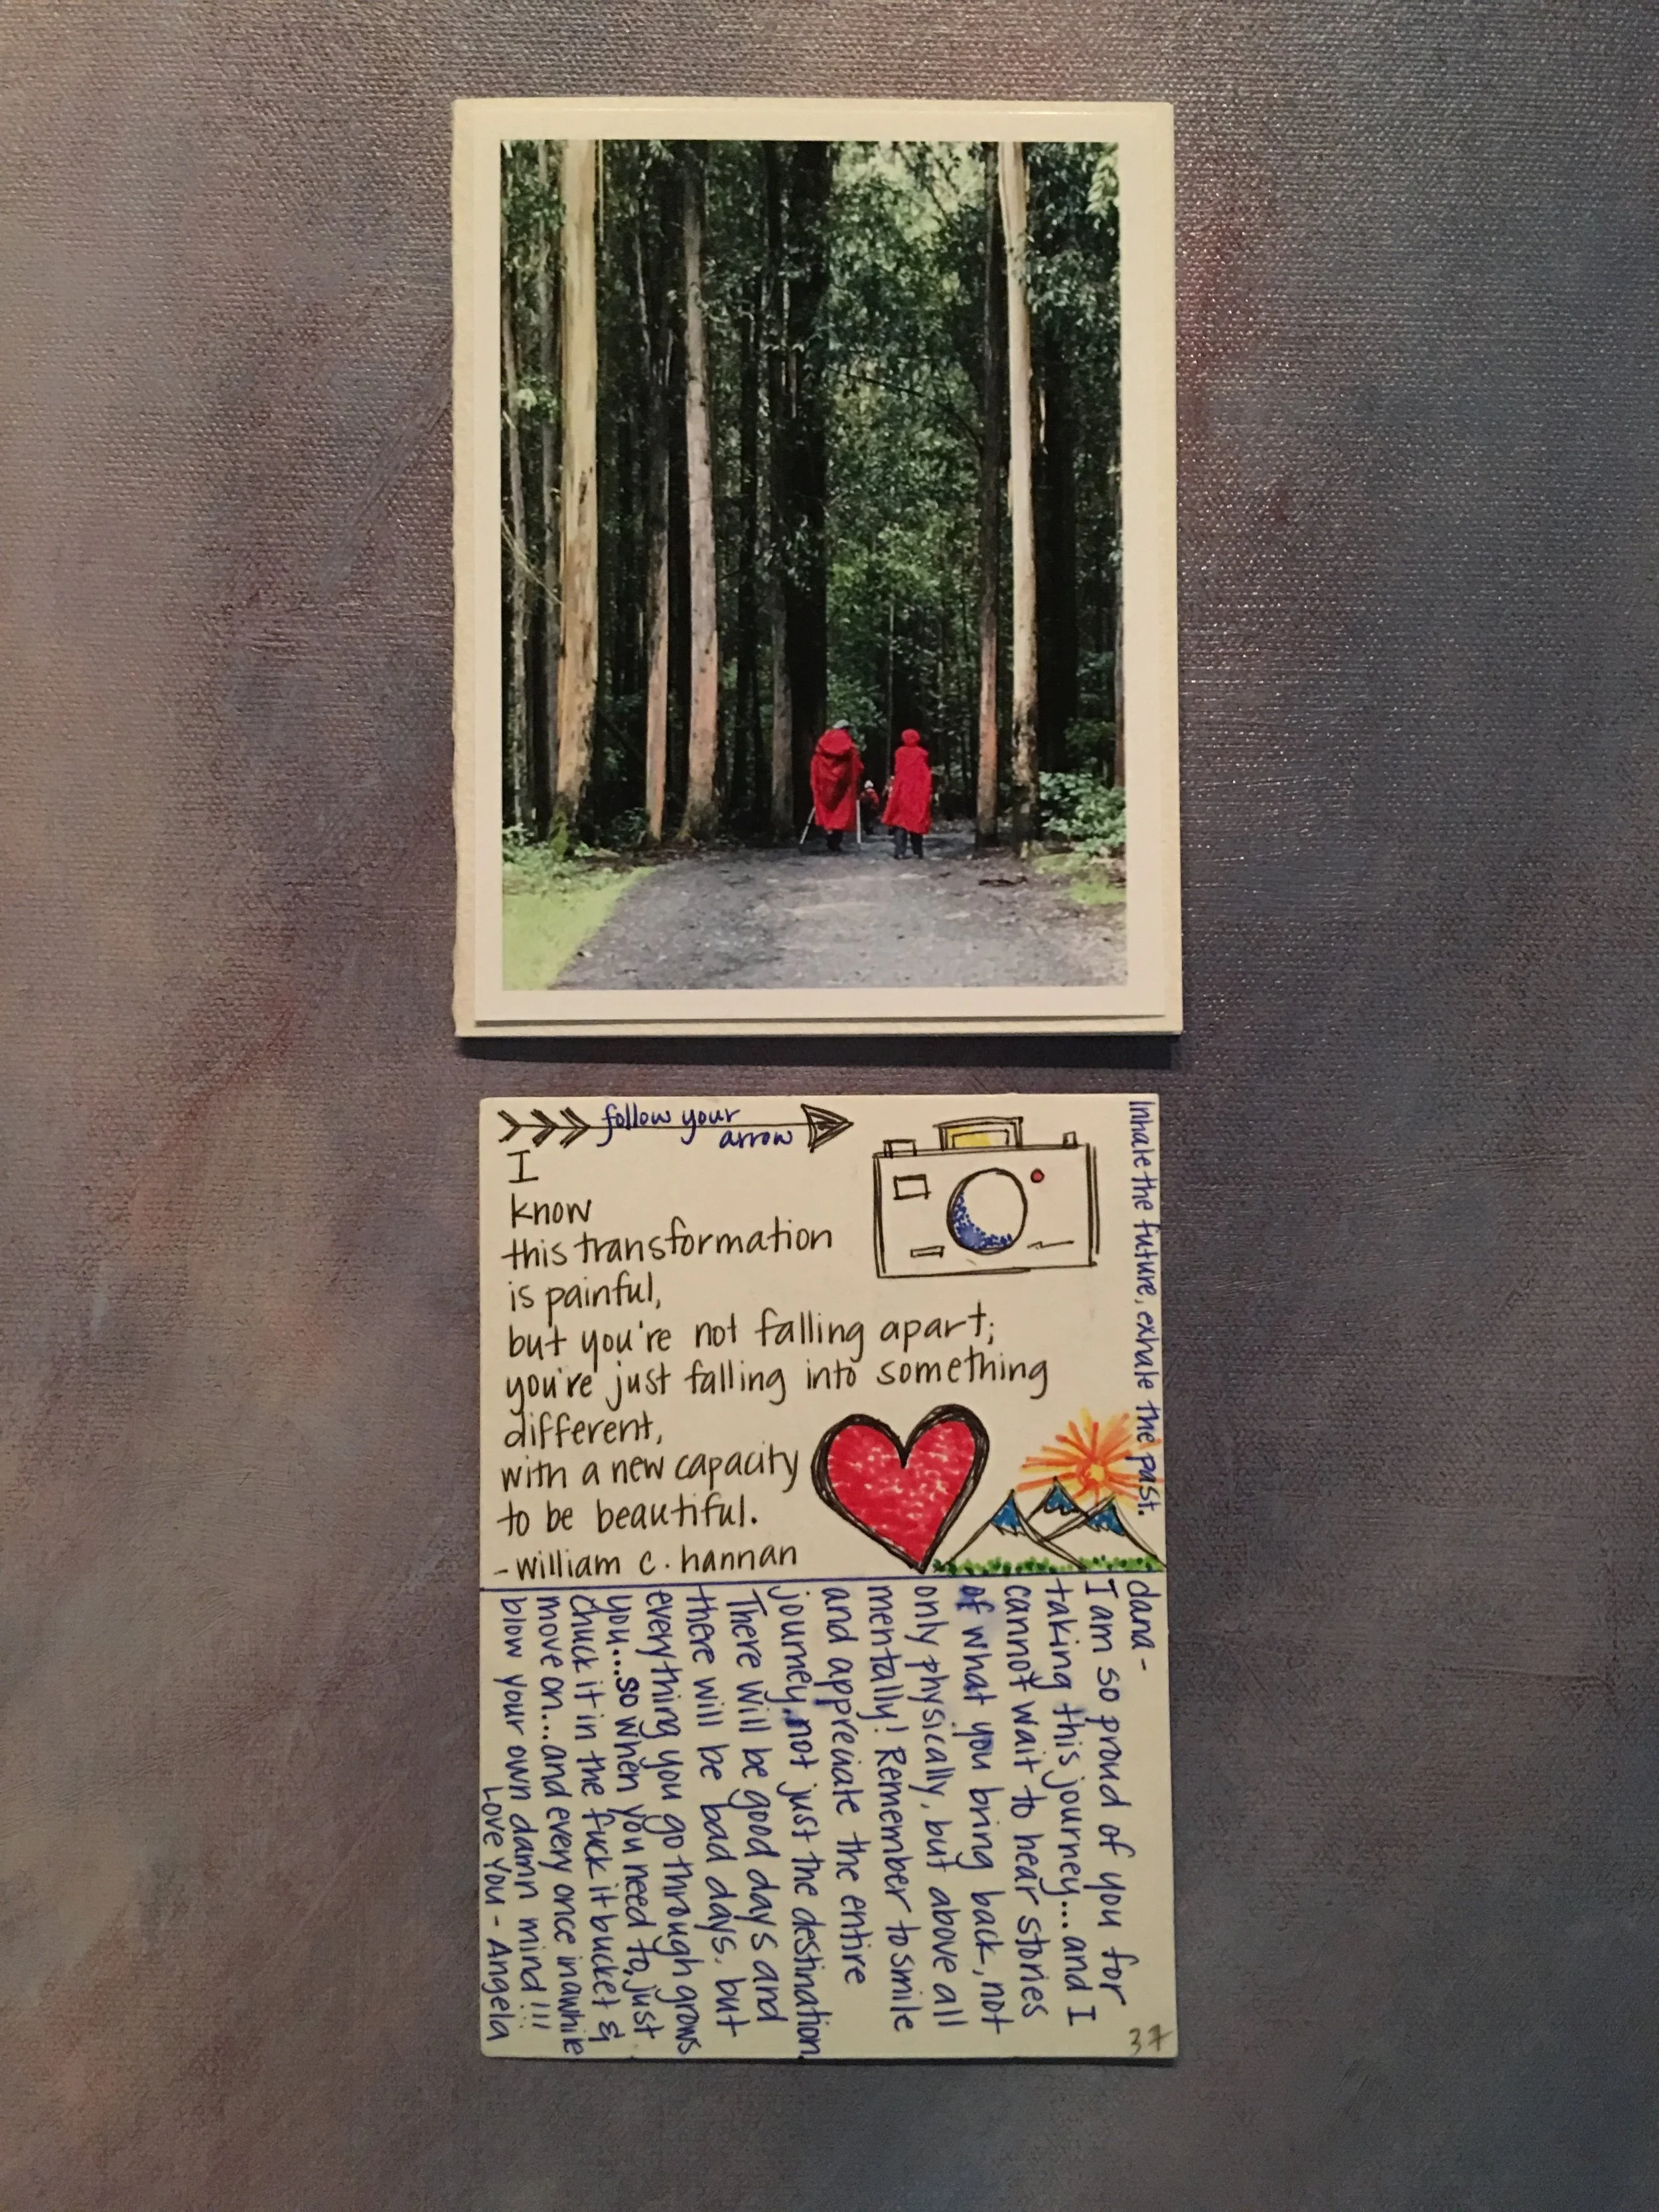 follow your
arrow
I
know
this transformation
is painful,
but you're not falling apart;
you're just falling into something
different,
with a new capacity
to be beautiful.
- william c. hannan
Inhale the future, exhale the past.
dana -
I am so proud of you for
taking this journey...and I
cannot wait to hear stories
of what you bring back, not
only physically, but above all
mentally! Remember to smile
and appreciate the entire
journey, not just the destination.
There will be good days and
there will be bad days, but
everything you go through grows
you...so when you need to, just
chuck it in the fuck it bucket &
move on...and every once in awhile
blow your own damn mind!!!
Love You - Angela
37